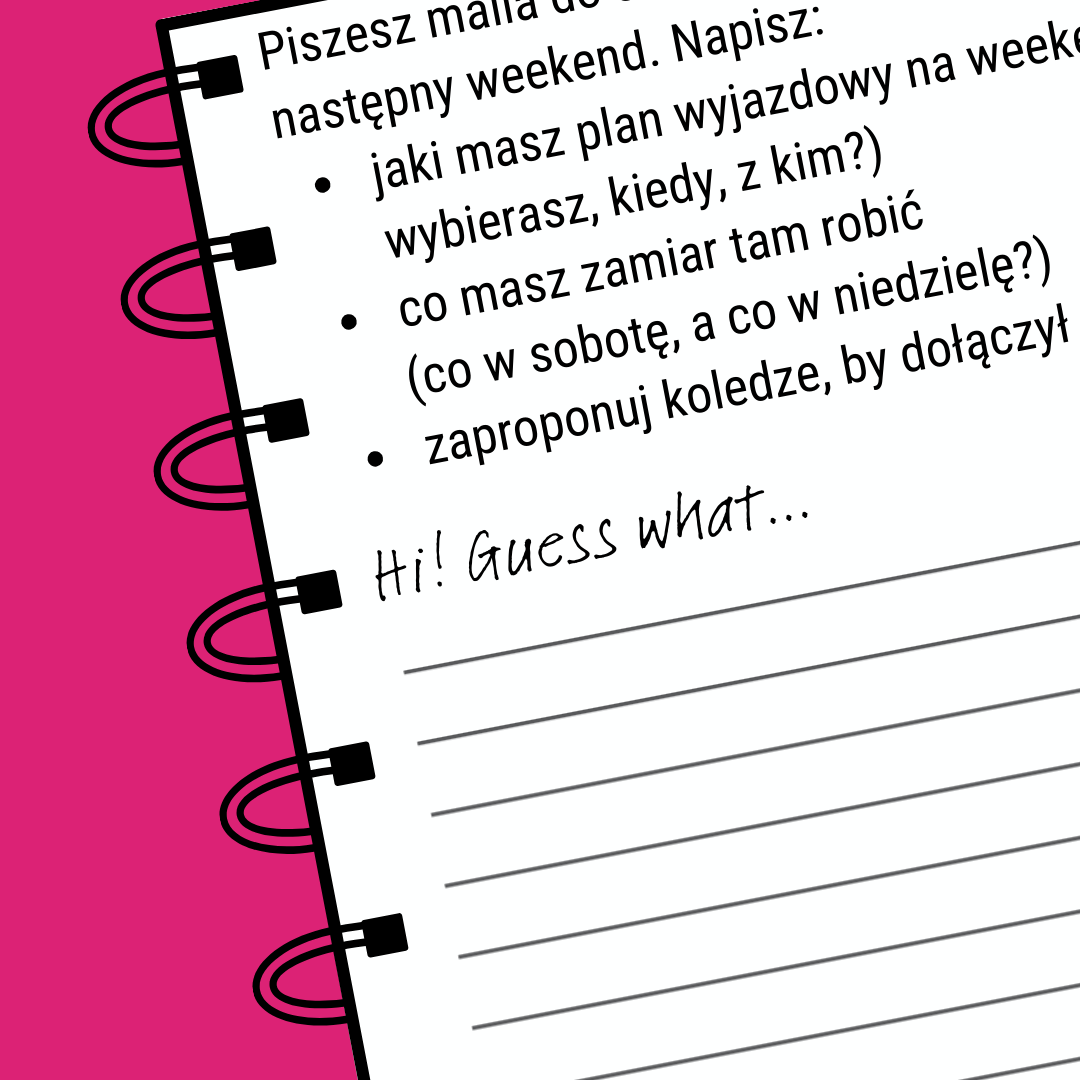 Piszesz maila do
następny weekend. Napisz:
• jaki masz plan wyjazdowy na
wybierasz, kiedy, z kim?)
• co masz zamiar tam robić
(co w sobotę, a co w niedzielę?)
• zaproponuj koledze, by dołączył
Hi! Guess what...